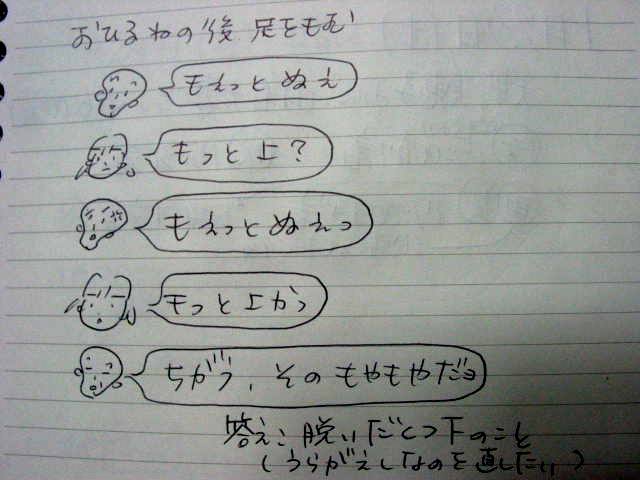 おひるねの後 足をもむ
もえっと ぬぇ
もっと上?
もえっと ぬぇっ
もっと上かっ
ちがう、そのもやもやだョ
答え: 脱いだくつ下のこと
(うらがえしなのを直したい)